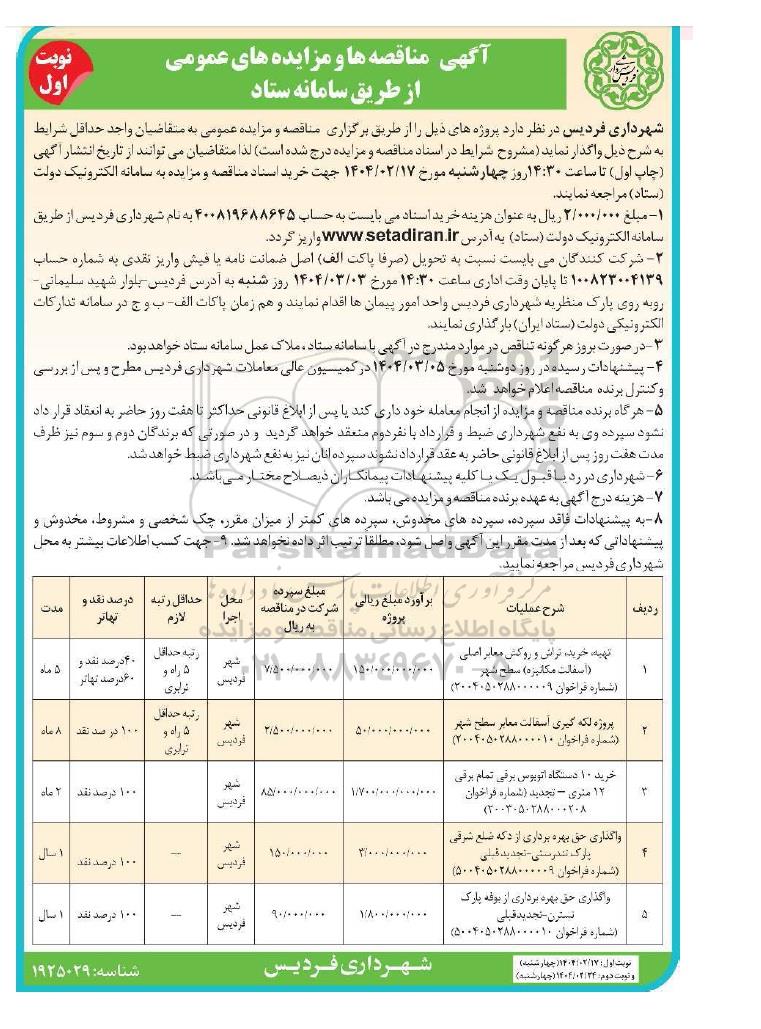 آگهی مناقصه ها و مزایده های عمومی
از طریق سامانه ستاد
نوبت
اول
شهرداری فردیس در نظر دارد پروژه های ذیل را از طریق برگزاری مناقصه و مزایده عمومی به متقاضیان واجد حداقل شرایط
به شرح ذیل واگذار نماید (مشروح شرایط در اسناد مناقصه و مزایده درج شده است) لذا متقاضیان می توانند از تاریخ انتشار آگهی
(چاپ اول) تا ساعت ۱۴:۳۰ روز چهارشنبه مورخ ۱۴۰۴/۰۲/۱۷ جهت خرید اسناد مناقصه و مزایده به سامانه الکترونیک دولت
(ستاد) مراجعه نمایند.
۱- مبلغ ۲/۰۰۰/۰۰۰ ریال به عنوان هزینه خرید اسناد می بایست به حساب ۴۰۰۸۱۹۶۸۸۶۴۵ به نام شهرداری فردیس از طریق
سامانه الکترونیک دولت (ستاد) به آدرس www.setadiran.ir واریز گردد.
۲- شرکت کنندگان می بایست نسبت به تحویل (صرفا پاکت الف) اصل ضمانت نامه یا فیش واریز نقدی به شماره حساب
۱۰۰۸۲۳۰۰۴۱۳۹ تا پایان وقت اداری ساعت ۱۴:۳۰ مورخ ۱۴۰۴/۰۳/۰۳ روز شنبه به آدرس فردیس-بلوار شهید سلیمانی-
روبه روی پارک منظریه شهرداری فردیس واحد امور پیمان ها اقدام نمایند و هم زمان پاکات الف- ب و ج در سامانه تدارکات
الکترونیکی دولت (ستاد ایران) بارگذاری نمایند.
۳-در صورت بروز هرگونه تناقص در موارد مندرج در آگهی با سامانه ستاد ، ملاک عمل سامانه ستاد خواهد بود.
۴- پیشنهادات رسیده در روز دوشنبه مورخ ۱۴۰۴/۰۳/۰۵ در کمیسیون عالی معاملات شهرداری فردیس مطرح و پس از بررسی
و کنترل برنده مناقصه اعلام خواهد شد.
۵- هرگاه برنده مناقصه و مزایده از انجام معامله خود داری کند یا پس از ابلاغ قانونی حداکثر تا هفت روز حاضر به انعقاد قرار داد
نشود سپرده وی به نفع شهرداری ضبط و قرارداد با نفر دوم منعقد خواهد گردید و در صورتی که برندگان دوم و سوم نیز ظرف
مدت هفت روز پس از ابلاغ قانونی حاضر به عقد قرارداد نشوند سپرده انان نیز به نفع شهرداری ضبط خواهد شد.
۶- شهرداری در رد یا قبول یک یا کلیه پیشنهادات پیمانکاران ذیصلاح مختار می باشد.
۷- هزینه درج آگهی به عهده برنده مناقصه و مزایده می باشد.
۸-به پیشنهادات فاقد سپرده، سپرده های مخدوش، سپرده های کمتر از میزان مقرر، چک شخصی و مشروط، مخدوش و
پیشنهاداتی که بعد از مدت مقرر این آگهی واصل شود، مطلقاً ترتیب اثر داده نخواهد شد. ۹- جهت کسب اطلاعات بیشتر به محل
شهرداری فردیس مراجعه نمایید.
ParsNamadData
مرکز فرآوری اطلاعات پارس نماد داده ها
پایگاه اطلاع رسانی مناقصه و مزایده
۰۲۱-۸۸۳۴۹۶۷۰-۵
ردیف شرح عملیات برآورد مبلغ ریالی پروژه مبلغ سپرده شرکت در مناقصه به ریال محل اجرا حداقل رتبه لازم درصد نقد و تهاتر مدت
۱ تهیه، خرید، تراش و روکش معابر اصلی (آسفالت مکانیزه) سطح شهر (شماره فراخوان ۲۰۰۴۰۵۰۲۸۸۰۰۰۰۰۹) ۱۵۰/۰۰۰/۰۰۰/۰۰۰ ۷/۵۰۰/۰۰۰/۰۰۰ شهر فردیس رتبه حداقل ۵ راه و ترابری ۴۰درصد نقد و ۶۰درصد تهاتر ۵ ماه
۲ پروژه لکه گیری آسفالت معابر سطح شهر (شماره فراخوان ۲۰۰۴۰۵۰۲۸۸۰۰۰۰۱۰) ۵۰/۰۰۰/۰۰۰/۰۰۰ ۲/۵۰۰/۰۰۰/۰۰۰ شهر فردیس رتبه حداقل ۵ راه و ترابری ۱۰۰ در صد نقد ۸ ماه
۳ خرید ۱۰ دستگاه اتوبوس برقی تمام برقی ۱۲ متری – تجدید (شماره فراخوان ۲۰۰۳۰۵۰۲۸۸۰۰۰۲۰۸) ۱/۷۰۰/۰۰۰/۰۰۰/۰۰۰ ۸۵/۰۰۰/۰۰۰/۰۰۰ شهر فردیس ۱۰۰ درصد نقد ۲ ماه
۴ واگذاری حق بهره برداری از دکه ضلع شرقی پارک تندرستی-تجدید قبلی (شماره فراخوان ۵۰۰۴۰۵۰۲۸۸۰۰۰۰۰۹) ۳/۰۰۰/۰۰۰/۰۰۰ ۱۵۰/۰۰۰/۰۰۰ شهر فردیس --- ۱۰۰ درصد نقد ۱ سال
۵ واگذاری حق بهره برداری از بوفه پارک نسترن-تجدیدقبلی (شماره فراخوان ۵۰۰۴۰۵۰۲۸۸۰۰۰۰۱۰) ۱/۸۰۰/۰۰۰/۰۰۰ ۹۰/۰۰۰/۰۰۰ شهر فردیس --- ۱۰۰ درصد نقد ۱ سال
نوبت اول: ۱۴۰۴/۰۲/۱۷(چهارشنبه)
و نوبت دوم: ۱۴۰۴/۰۲/۲۴(چهارشنبه)
شهرداری فردیس
شناسه: ۱۹۲۵۰۲۹